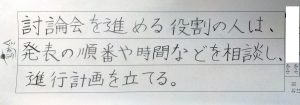 討論会を進める役割の人は、
発表の順番や時間などを相談し、
進行計画を立てる。